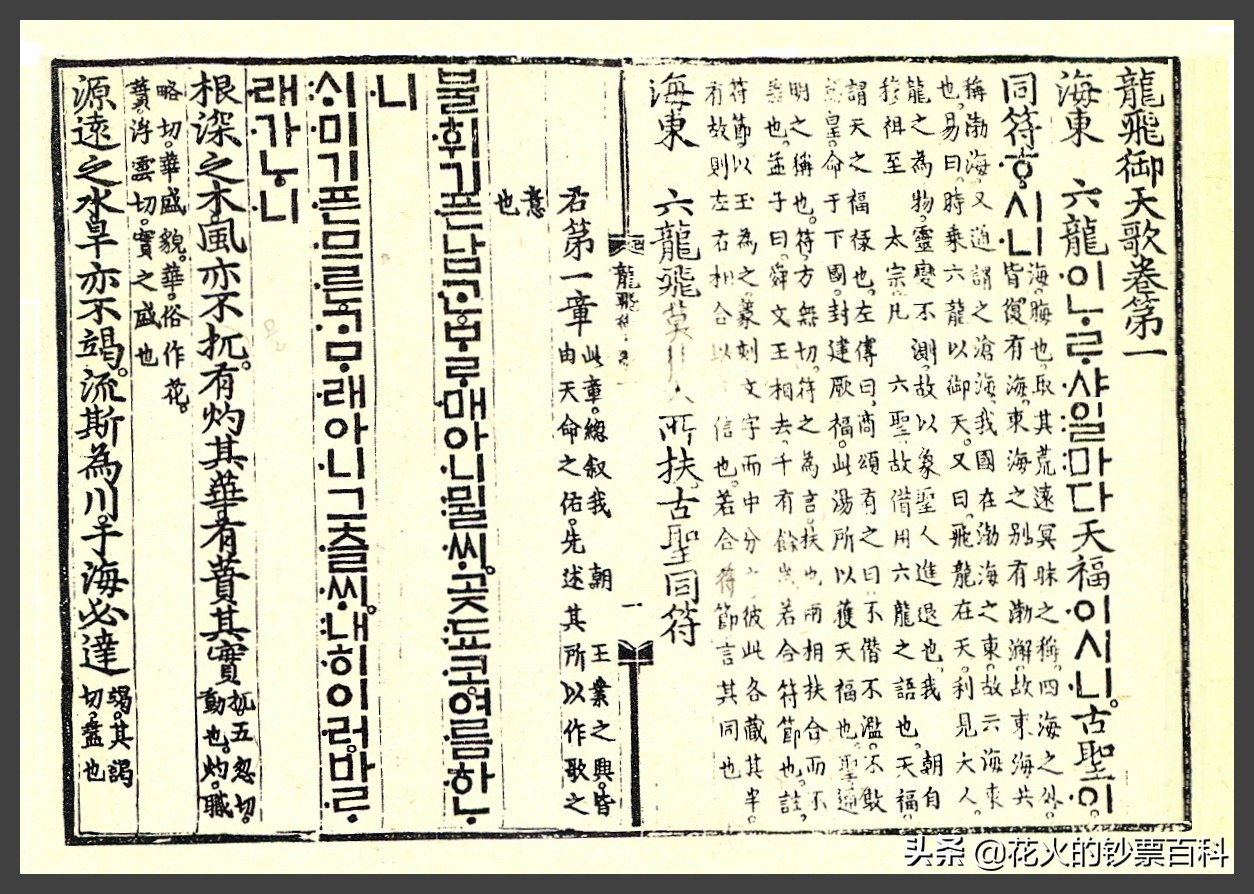 龍飛御天歌卷第一
海東 六龍이ᄂᆞᄅᆞ샤일마다天福이시니。古聖이
同符ᄒᆞ시니
海。晦也。取其荒遠冥昧之稱。四海之外。
皆復有海。東海之别有渤澥。故東海共
稱渤海。又通謂之滄海。我國在渤海之東。故云海東
也。易曰。時乘六龍以御天。又曰。飛龍在天。利見大人。
龍之為物。靈變不測。故以象聖人進退也。我 朝自
穆祖至 太宗。凡 六聖。故借用六龍之語也。天福。
謂天之福祿也。左傳曰。商頌有之曰。不僭不濫。不敢
皇。命于下國。封建厥福。此湯所以獲天福也。聖。通
明之稱也。符。方無切。符之為言扶也。兩相扶合而不
差也。孟子曰。舜文王相去千有餘歲若合符節也。註。
符節。以玉為之。篆刻文字而中分之。彼此各藏其半。
有故則左右相合以 信也。若合符節言其同也
海東 六龍飛。莫 所扶。古聖同符
龍飛 一
君第一章
此章。總叙我 朝 王業之興。皆
由天命之佑。先述其所以作歌之
意
也
불휘기픈남ᄀᆞᆫᄇᆞᄅᆞ매아니뮐ᄊᆡ。곶됴코여름하ᄂᆞ
니
ᄉᆡ미기픈므른ᄀᆞᄆᆞ래아니그츨ᄊᆡ。내히이러바ᄅᆞ
래가ᄂᆞ니
根深之木。風亦不扤。有灼其華。有蕡其實
扤。五忽切。
動也。灼。職
略切。華盛貌。華。俗作花。
蕡浮雲切。實之盛也
源遠之水。旱亦不竭。流斯為川。于海必達
竭。其謁
切。盡也
头条 @花火的钞票百科